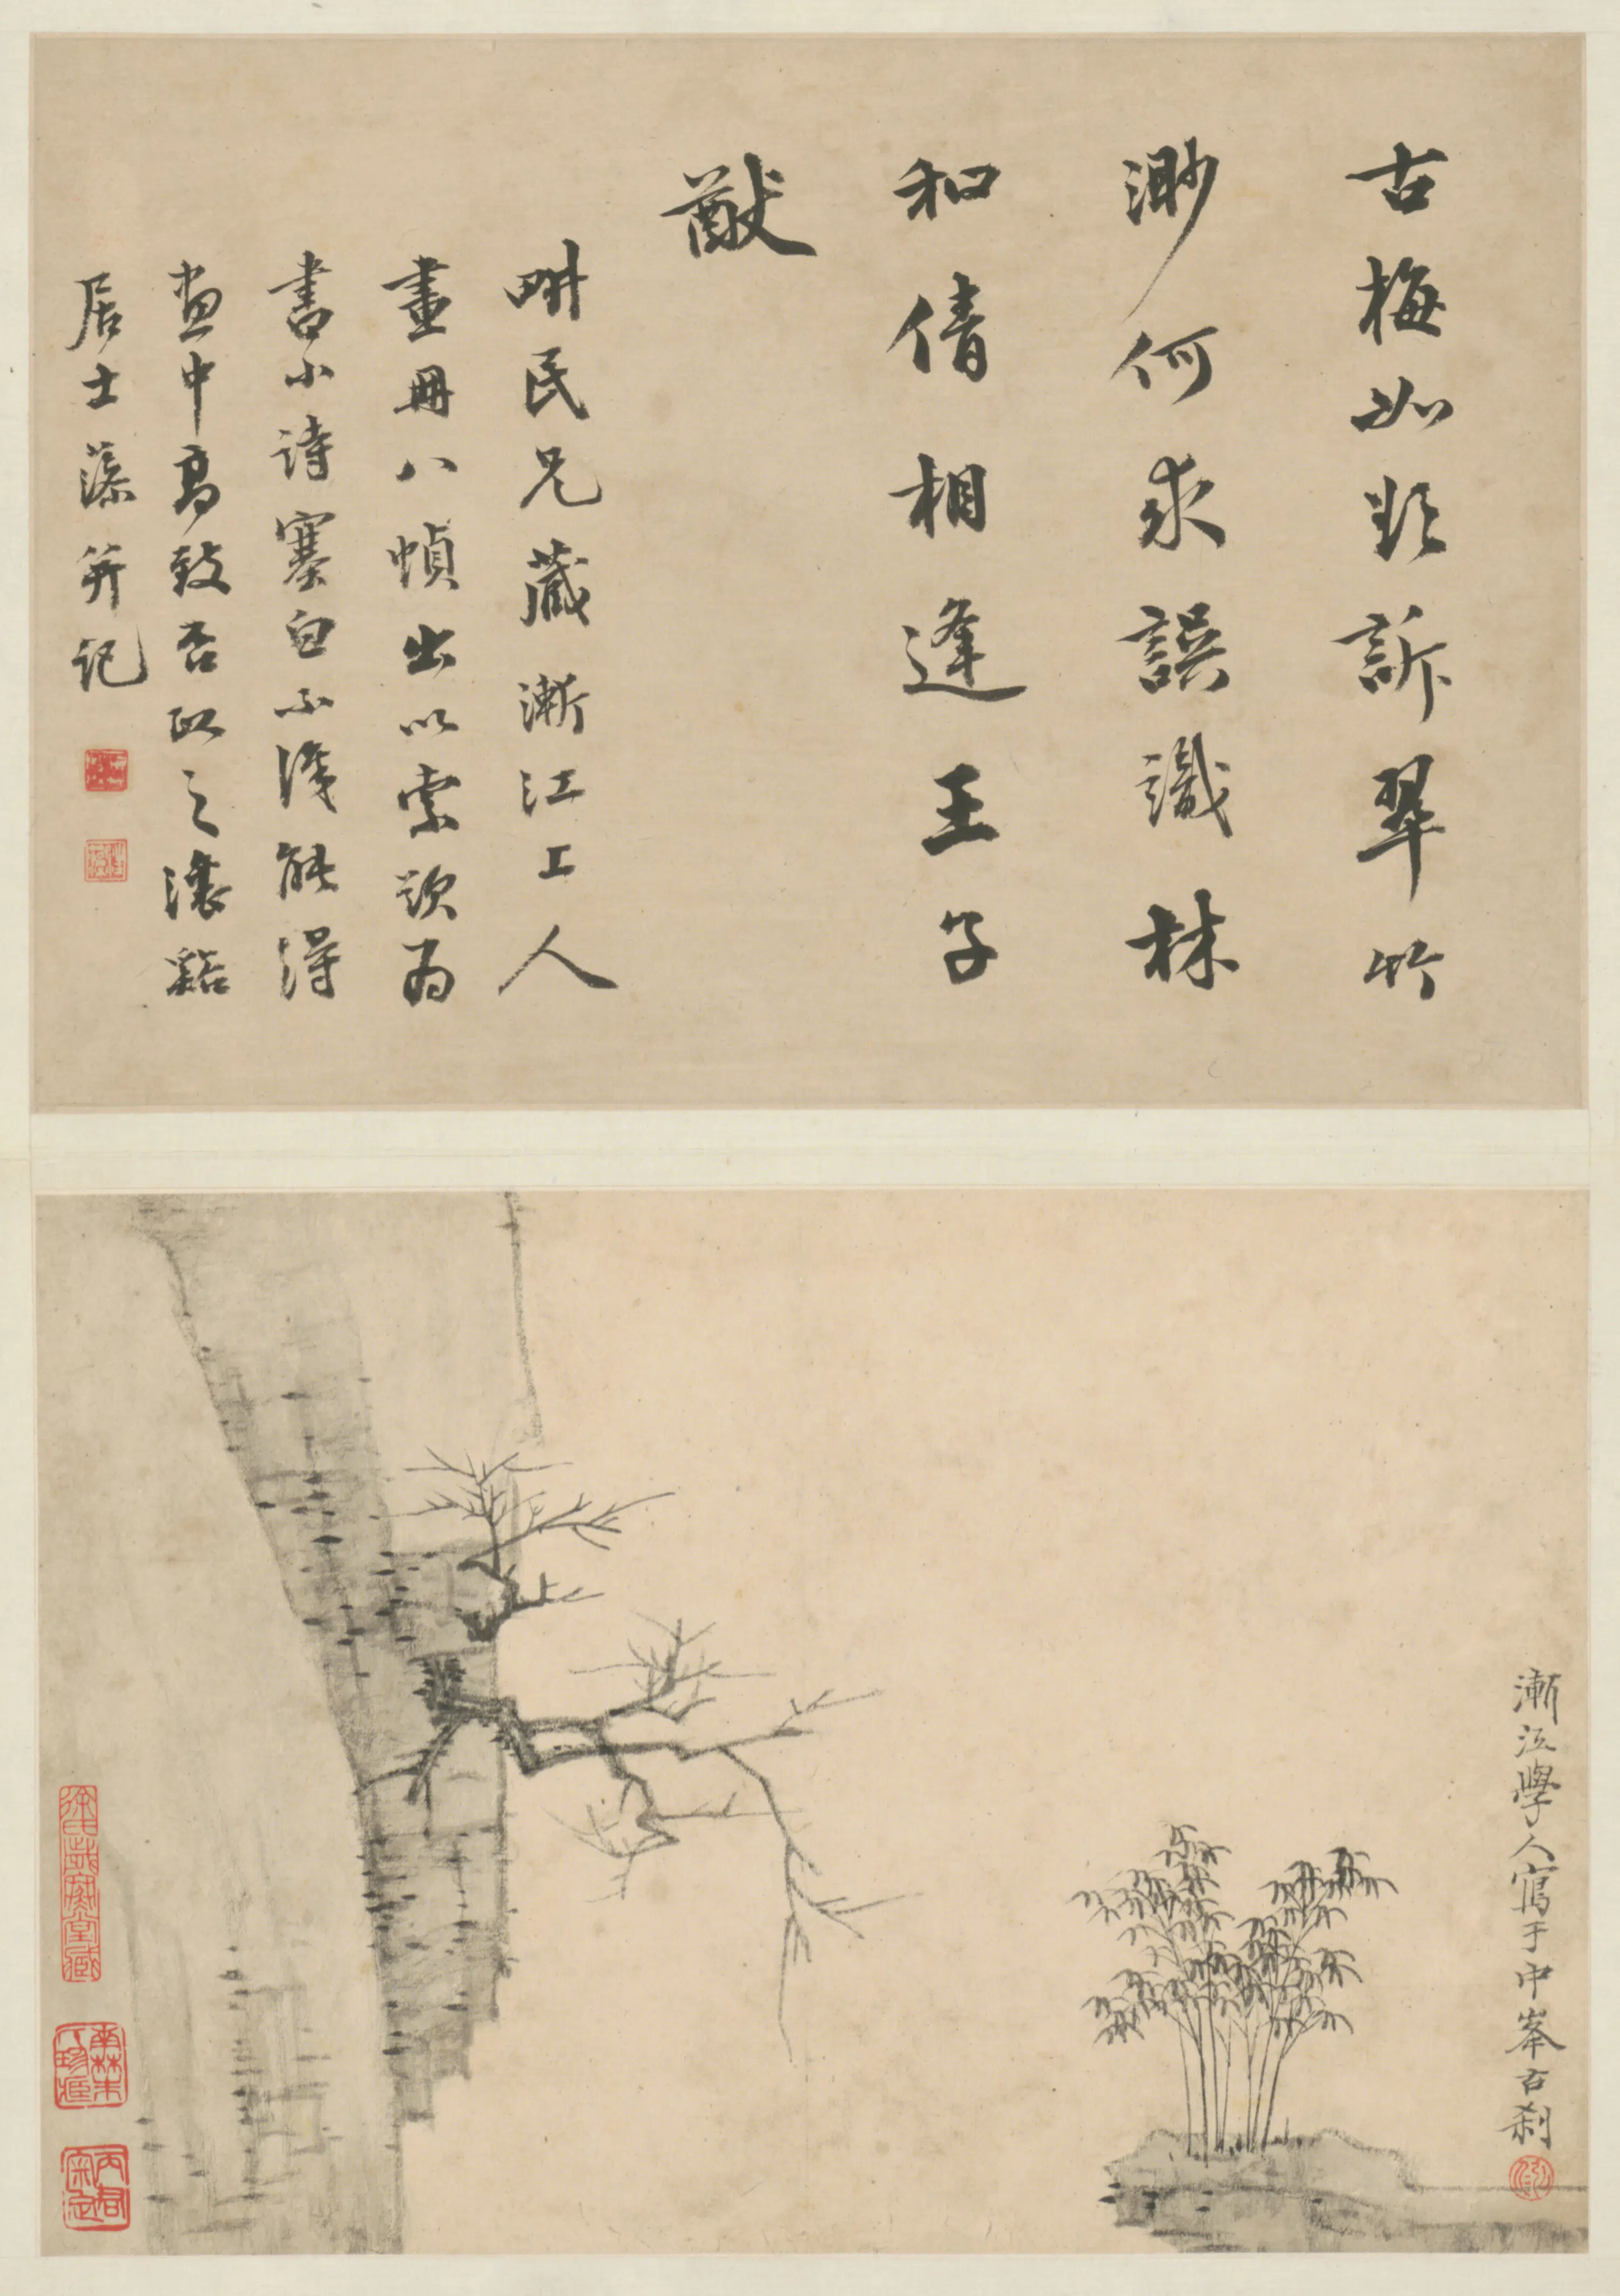 古梅如欲訴翠竹
渺何求誤識林
和倩相逢王子
猷
畊民兄藏漸江上人
畫冊八幀出以索題為
書小詩塞白不識能得
畫中高致否政之瀼谿
居士藻并記
漸江學人寫于中峯古刹